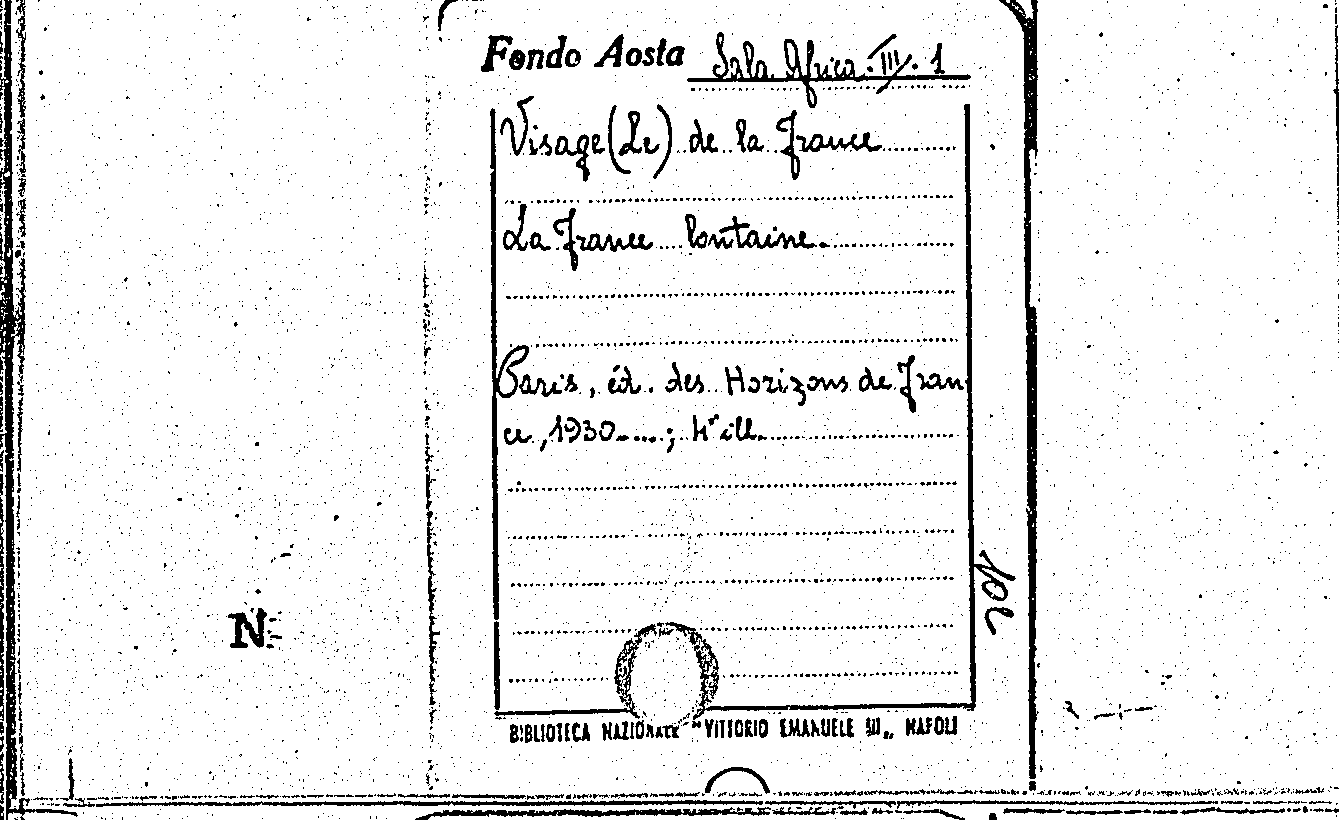 Fondo Aosta Sala Africa. III. 1
Visage (Le) de la France
La France lontaine.
Paris, éd. des Horizons de Fran
ce, 1930....; 4° ill.
102
N
BIBLIOTECA NAZIONALE "VITTORIO EMANUELE III" NAPOLI